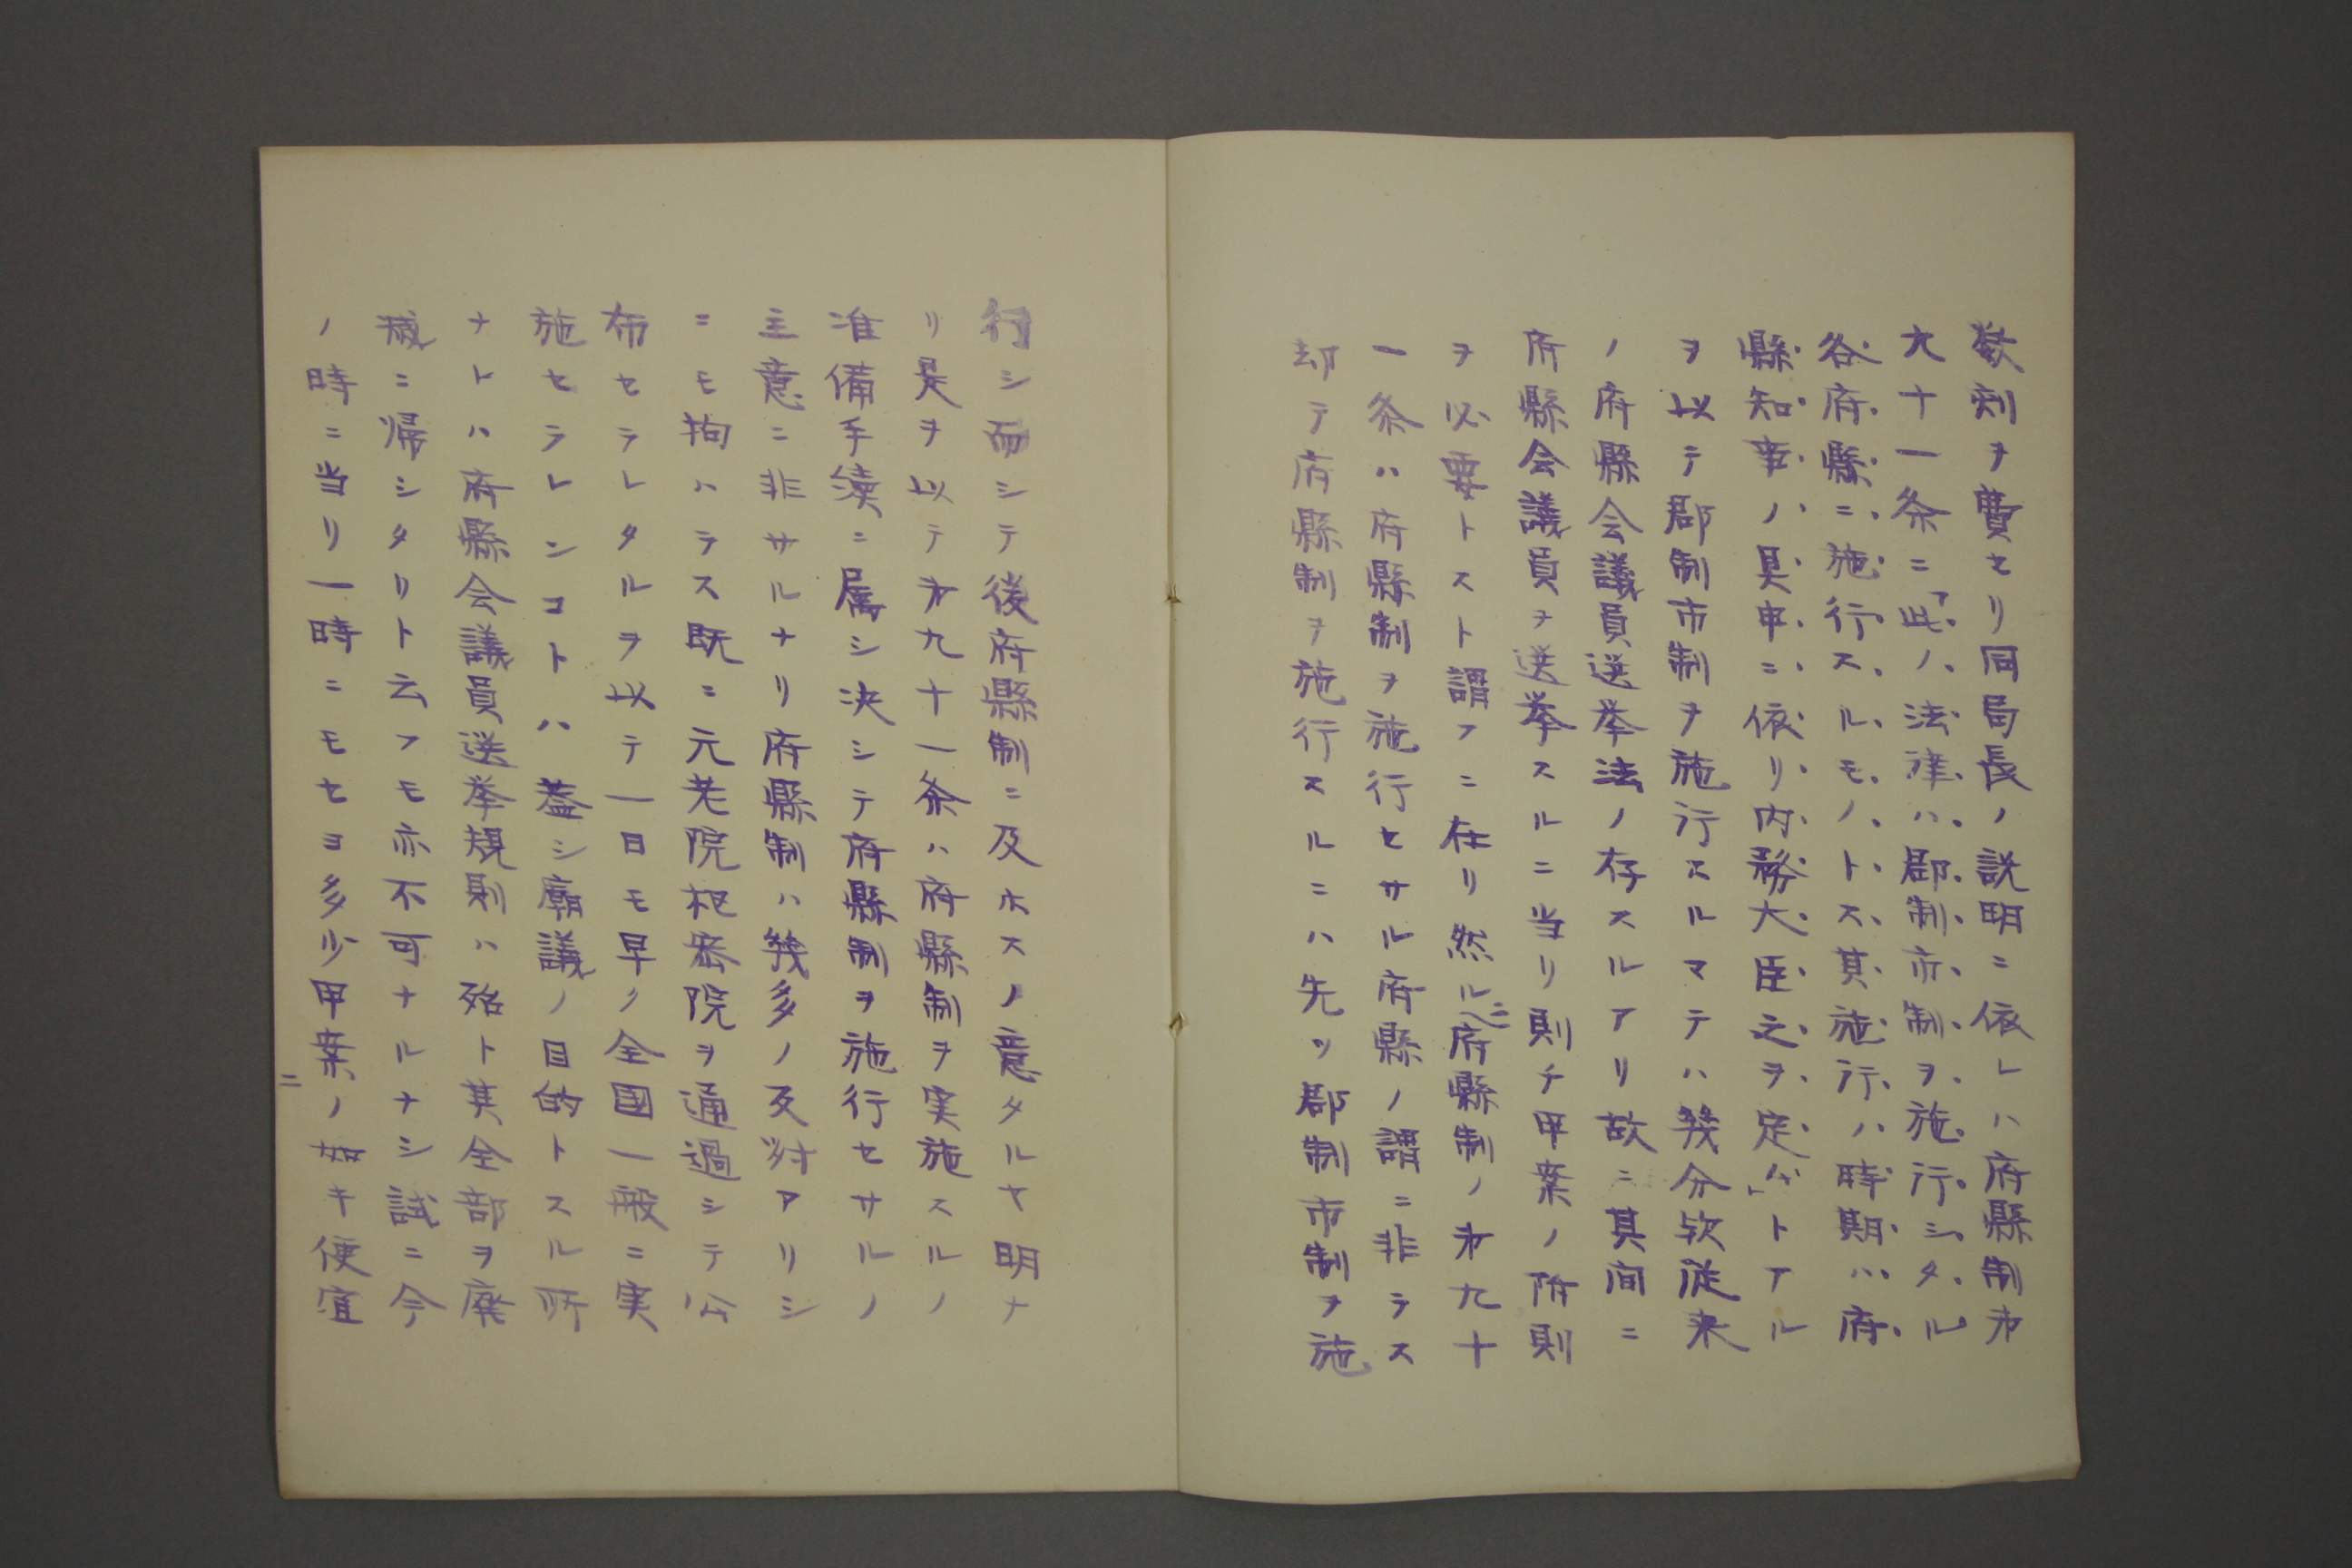 数刻ヲ費セリ同局長ノ説明ニ依レハ府縣制㐧
九十一条ニ「此ノ法律ハ郡制市制ヲ施行シタル
各府縣ニ施行スルモノトス其施行ハ時期ハ府
縣知事ノ具申ニ依リ内務大臣之ヲ定ム」トアル
ヲ以テ郡制市制ヲ施行スルマテハ幾分欤従来
ノ府縣会議員選挙法ノ存スルアリ故ニ其间ニ
府縣会議員ヲ選挙スルニ当リ則チ甲案ノ附則
ヲ必要トスト謂フニ在リ然ルニ府縣制ノ㐧九十
一条ハ府縣制ヲ施行セサル府縣ノ謂ニ非ラス
却テ府縣制ヲ施行スルニハ先ツ郡制市制ヲ施
行シ而シテ後府縣制ニ及ホスノ意タルヤ明ナ
リ是ヲ以テ㐧九十一条ハ府縣制ヲ実施スルノ
准備手續ニ属シ决シテ府縣制ヲ施行セサルノ
主意ニ非サルナリ府縣制ハ幾多ノ反対アリシ
ニモ拘ハラス既ニ元老院枢密院ヲ通過シテ公
布セラレタルヲ以テ一日モ早ク全國一般ニ実
施セラレンコトハ蓋シ廟議ノ目的トスル所
ナトハ府縣会議員選挙規則ハ殆ト其全部ヲ廃
滅ニ帰シタリト云フモ亦不可ナルナシ試ニ今
ノ時ニ当リ一時ニモセヨ多少甲案ノ如キ便宜
二